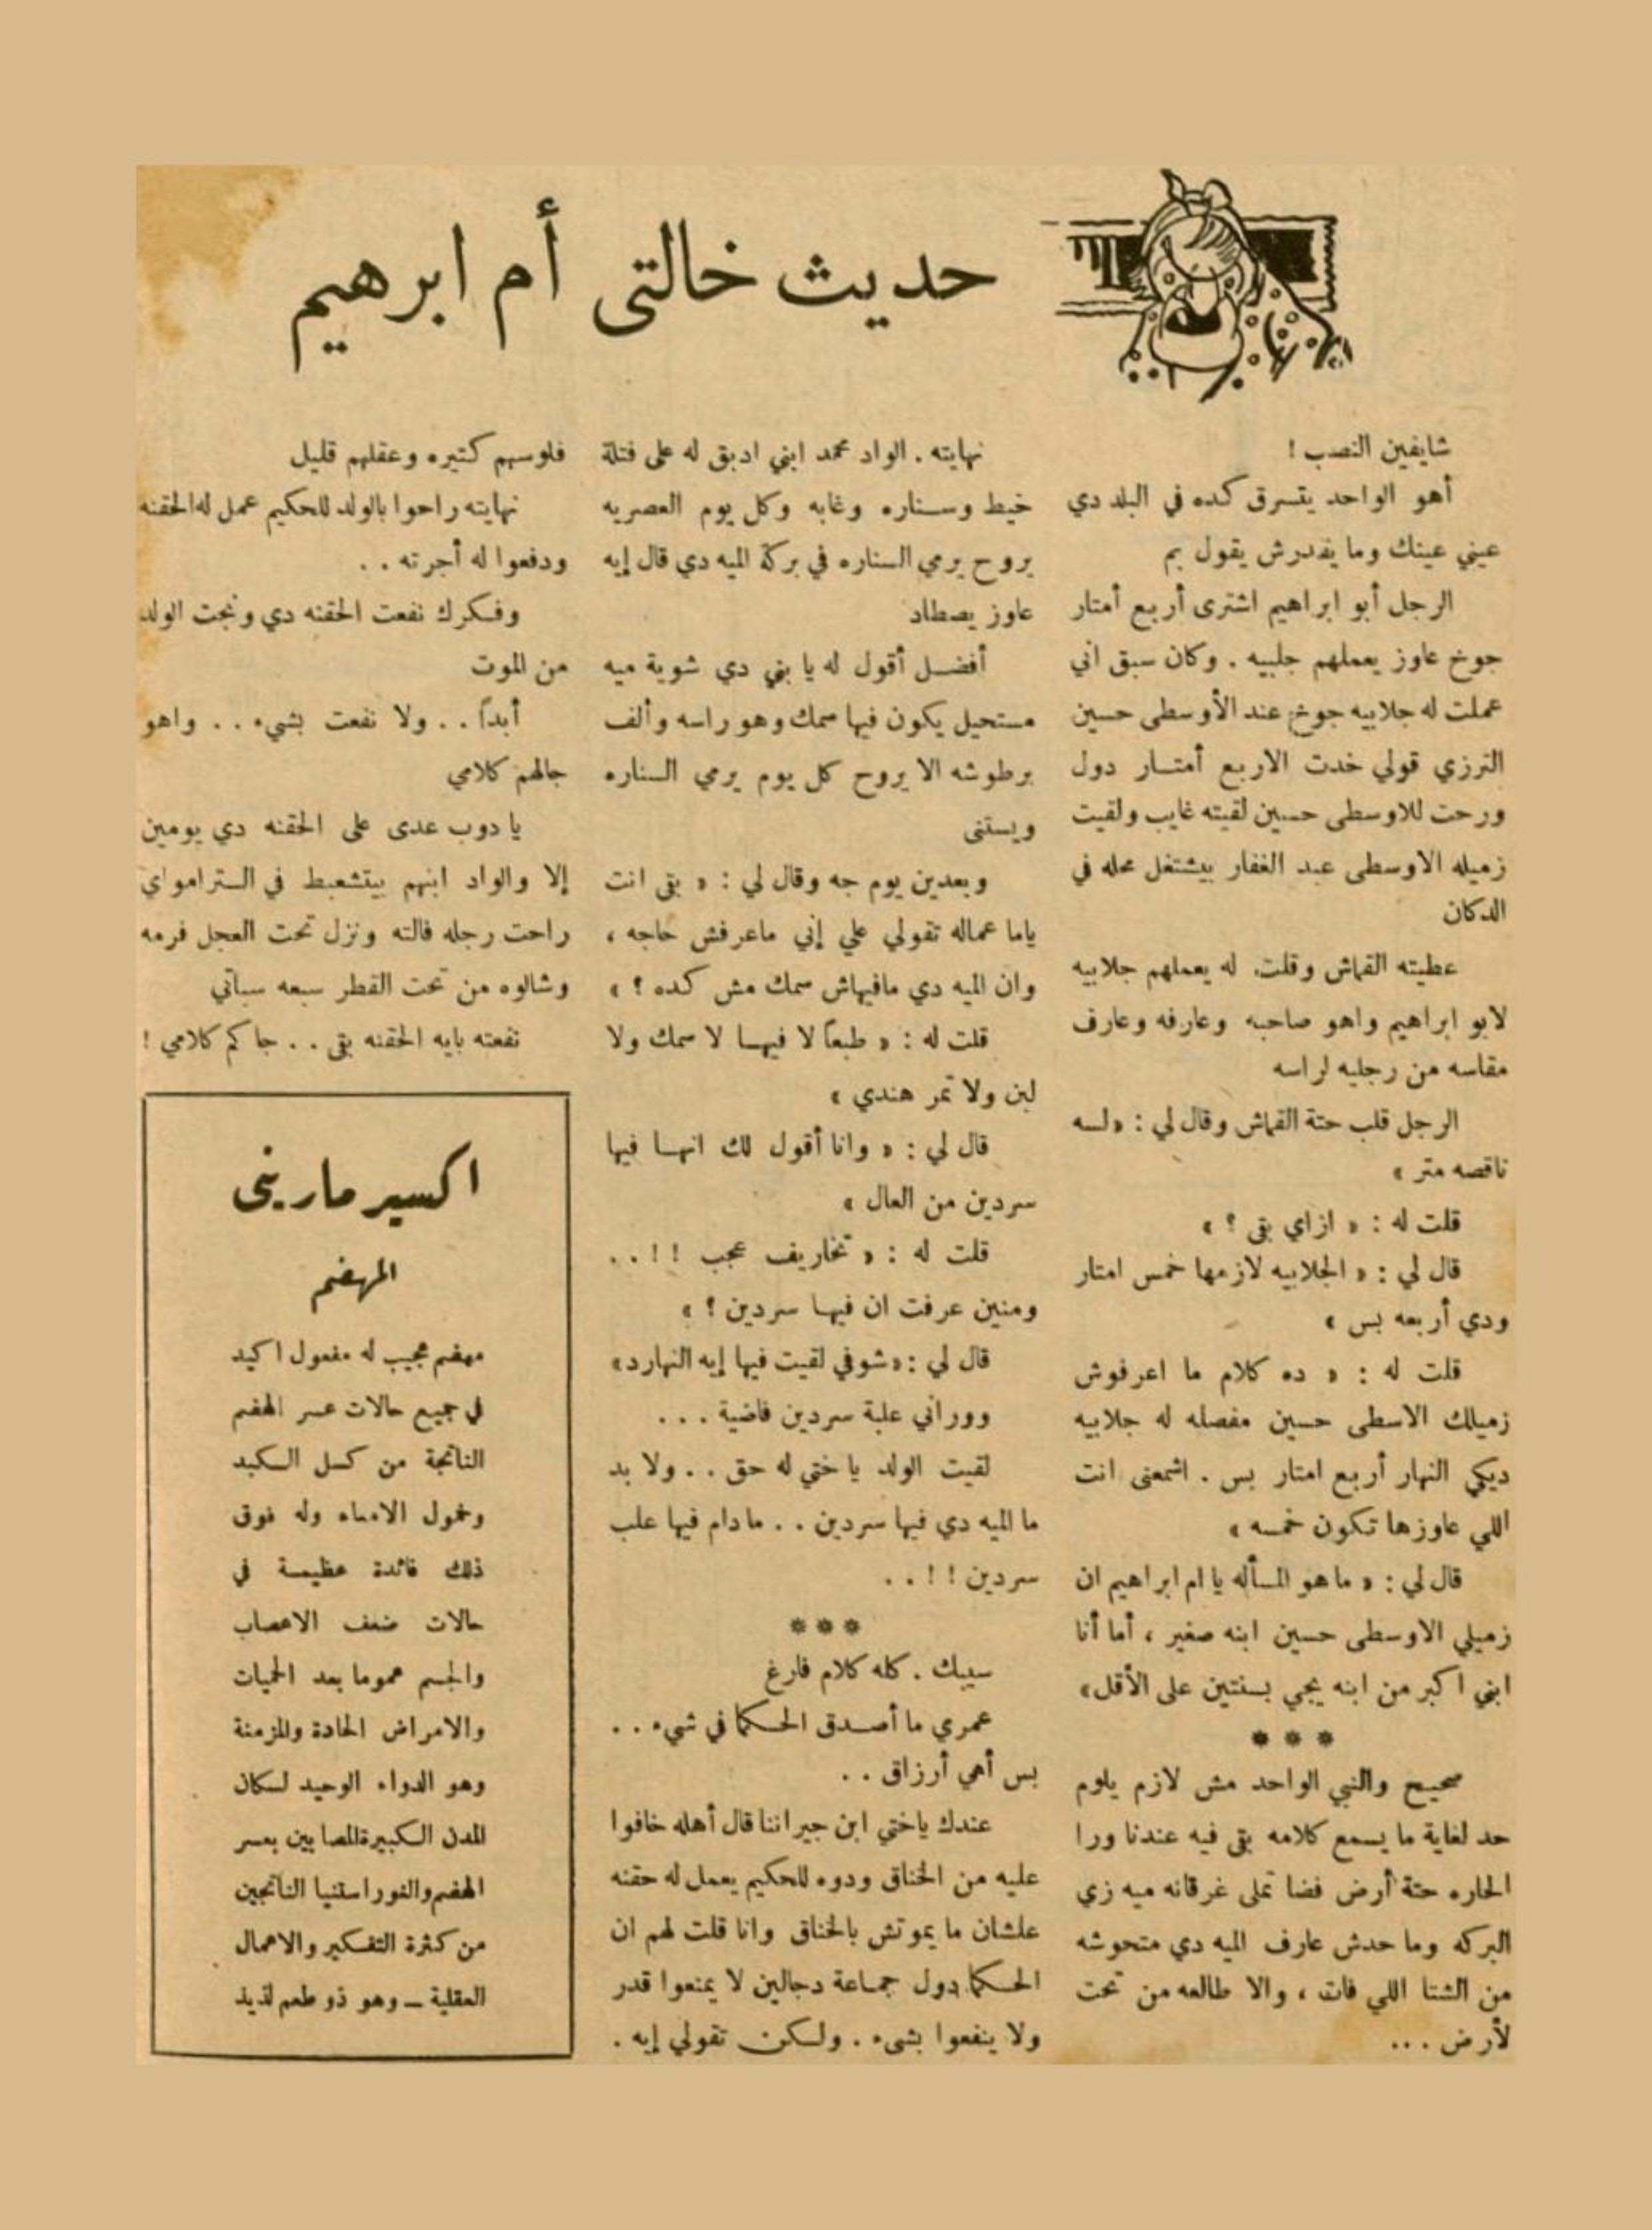 حديث خالتى أم ابرهيم
شايفين النصب !
أهو الواحد يتسرق كده في البلد دي
عيني عينك وما يقدرش يقول بم
الرجل أبو ابراهيم اشترى أربع أمتار
جوخ عاوز يعملهم جلبيه . وكان سبق اني
عملت له جلابيه جوخ عند الأوسطى حسين
الترزي قولي خدت الاربع أمتار دول
ورحت للاوسطى حسين لقيته غايب ولقيت
زميله الاوسطى عبد الغفار بيشتغل محله في
الدكان
عطيته القماش وقلت له يعملهم جلابيه
لابو ابراهيم واهو صاحبه وعارفه وعارف
مقاسه من رجليه لراسه
الرجل قلب حتة القماش وقال لي : «لسه
ناقصه متر »
قلت له : « ازاي بقى ؟ »
قال لي : « الجلابيه لازمها خمس امتار
ودي أربعه بس »
قلت له : « ده كلام ما اعرفوش
زميلك الاسطى حسين مفصله له جلابيه
ديكي النهار أربع امتار بس . اشمعنى انت
اللي عاوزها تكون خمسه »
قال لي : « ما هو المسأله يا ام ابراهيم ان
زميلي الاوسطى حسين ابنه صغير ، أما أنا
ابني اكبر من ابنه يجي بسنتين على الأقل»
* * *
صحيح والنبي الواحد مش لازم يلوم
حد لغاية ما يسمع كلامه بقى فيه عندنا ورا
الحاره حتة أرض فضا تملى غرقانه ميه زي
البركه وما حدش عارف الميه دي متحوشه
من الشتا اللي فات ، والا طالعه من تحت
لأرض ...
نهايته . الواد محمد ابني ادبق له على فتلة
خيط وسناره وغابه وكل يوم العصريه
يروح يرمي السناره في بركة الميه دي قال إيه
عاوز يصطاد
أفضل أقول له يا بني دي شوية ميه
مستحيل يكون فيها سمك وهو راسه وألف
برطوشه الا يروح كل يوم يرمي السناره
ويستنى
وبعدين يوم جه وقال لي : « بقى انت
ياما عماله تقولي علي إني ماعرفش حاجه ،
وان الميه دي مافيهاش سمك مش كده ؟ »
قلت له : « طبعاً لا فيها لا سمك ولا
لبن ولا تمر هندي »
قال لي : « وانا أقول لك انها فيها
سردين من العال »
قلت له : « تخاريف عجب ! ! . .
ومنين عرفت ان فيها سردين ؟ »
قال لي : «شوفي لقيت فيها إيه النهارد»
ووراني علبة سردين فاضية . . .
لقيت الولد يا ختي له حق . . ولا بد
ما الميه دي فيها سردين . . مادام فيها علب
سردين ! ! . .
* * *
سيبك . كله كلام فارغ
عمري ما أصدق الحكما في شيء . .
بس أهي أرزاق . .
عندك ياختي ابن جيراننا قال أهله خافوا
عليه من الخناق ودوه للحكيم يعمل له حقنه
علشان ما يموتش بالخناق وانا قلت لهم ان
الحكما دول جماعة دجالين لا يمنعوا قدر
ولا ينفعوا بشىء . ولكن تقولي إيه .
فلوسهم كتيره وعقلهم قليل
نهايته راحوا بالولد للحكيم عمل له الحقنه
ودفعوا له أجرته . .
وفكرك نفعت الحقنه دي ونجت الولد
من الموت
أبداً . . ولا نفعت بشيء . . واهو
جالهم كلامي
يا دوب عدى على الحقنه دي يومين
إلا والواد ابنهم بيتشعبط في الستراموأي
راحت رجله فالته ونزل تحت العجل فرمه
وشالوه من تحت القطر سبعه سباتي
نفعته بايه الحقنه بقى . . جا كم كلامي !
اكسير مارينى
المهضم
مهضم عجيب له مفعول اكيد
في جميع حالات عسر الهضم
الناتجة من كسل الكبد
وخمول الامعاء وله فوق
ذلك فائدة عظيمة في
حالات ضعف الاعصاب
والجسم عموما بعد الحميات
والامراض الحادة والمزمنة
وهو الدواء الوحيد لسكان
المدن الكبيرة المصابين بعسر
الهضم والنوراستنيا الناتجين
من كثرة التفكير والاعمال
العقلية - وهو ذو طعم لذيذ